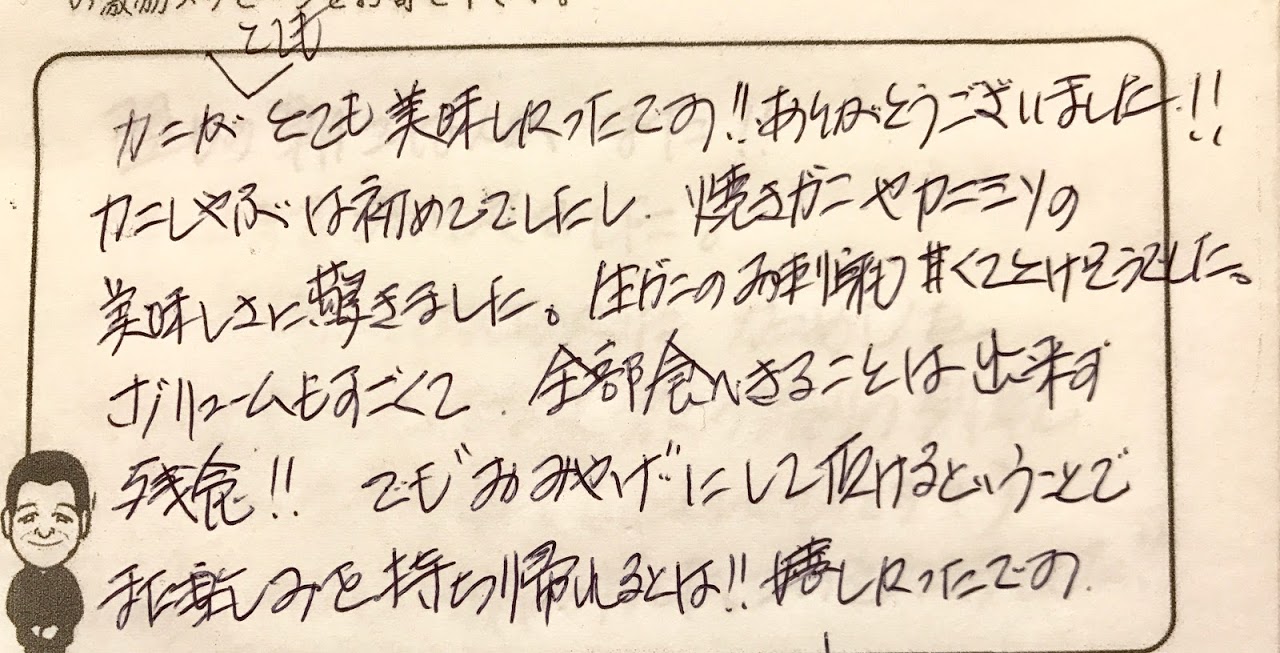 とても
カニが とても美味しかったです!!ありがとうございました!!
カニしゃぶは初めてでしたし、焼きガニやカニミソの
美味しさに驚きました。生ガニのお刺身も甘くてとけそうでした。
ボリュームもすごくて、全部食べきることは出来ず
残念!! でも"おみやげ"にして頂けるということで
また楽しみを持ち帰れるとは!!嬉しかったです